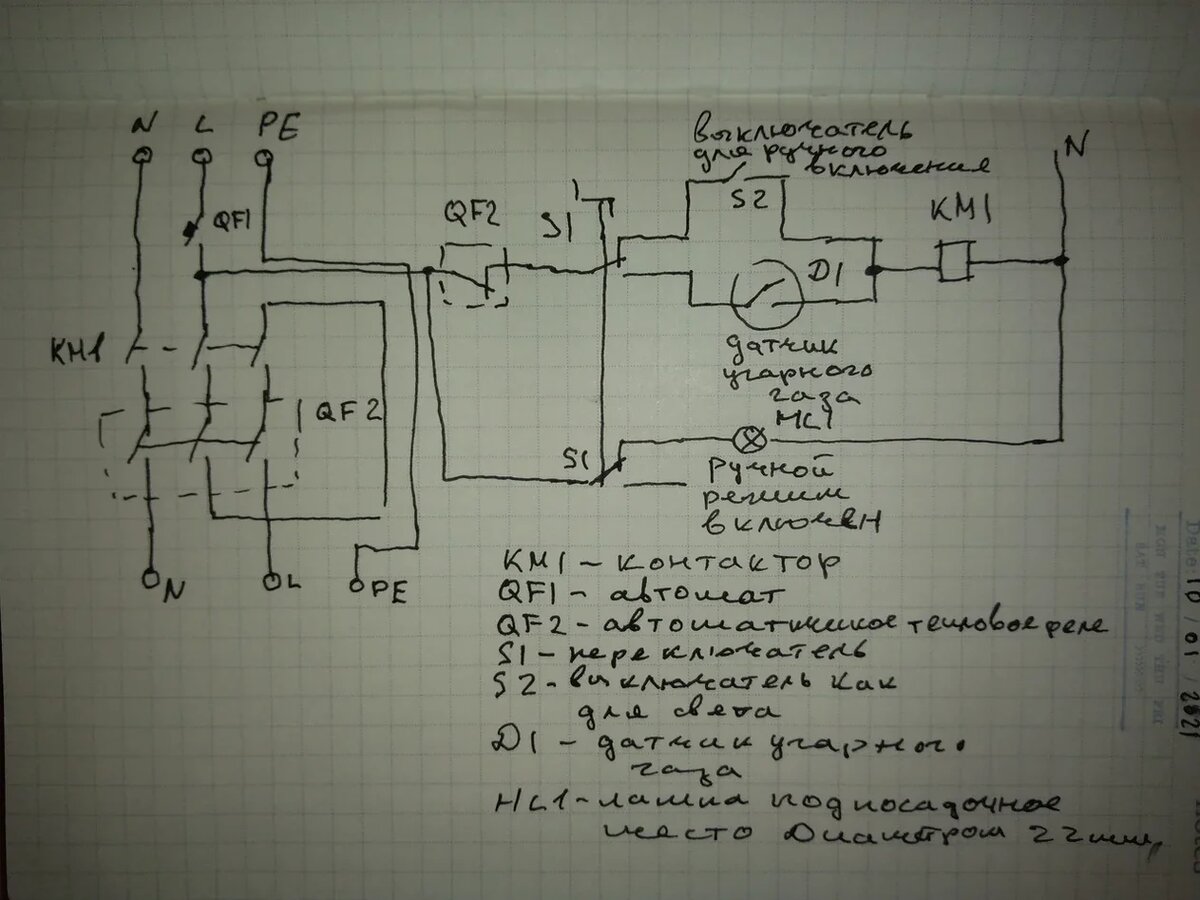 N L PE
QF1
KM1
QF2
N L PE
QF2
S1
выключатель
для ручного
включения
S2
KM1
N
D1
датчик
угарного
газа
HL1
S1
Ручной
режим
включен
KM1 – контактор
QF1 – автомат
QF2 – автоматическое тепловое реле
S1 – переключатель
S2 – выключатель как
для света
D1 – датчик угарного
газа
HL1 – лампа под посадочное
место Диаметром 22мм,
10 / 01 / 2021